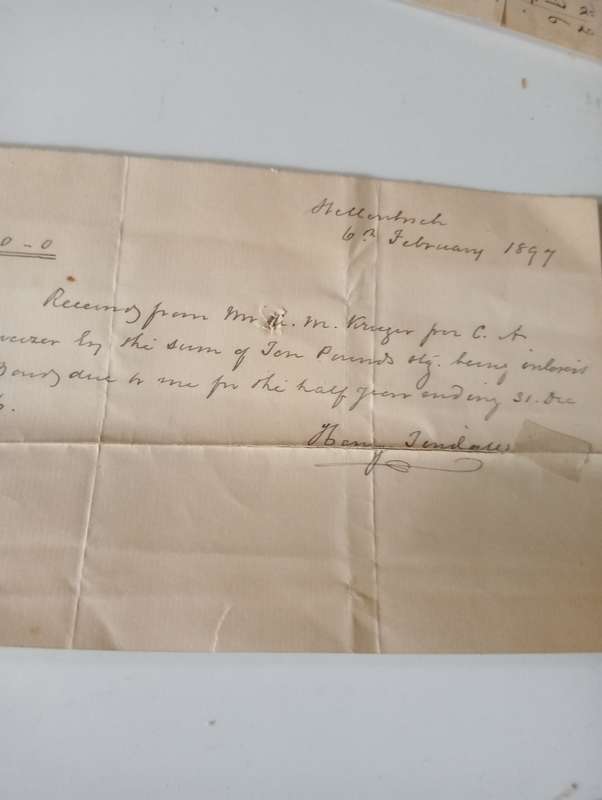 Stellenbosch
6th February 1897
0 - 0
Received from Mr M. Kruger for C. A
by the sum of Ten Pounds stg. being interest
due to me for the half year ending 31. Dec
6.
Harry